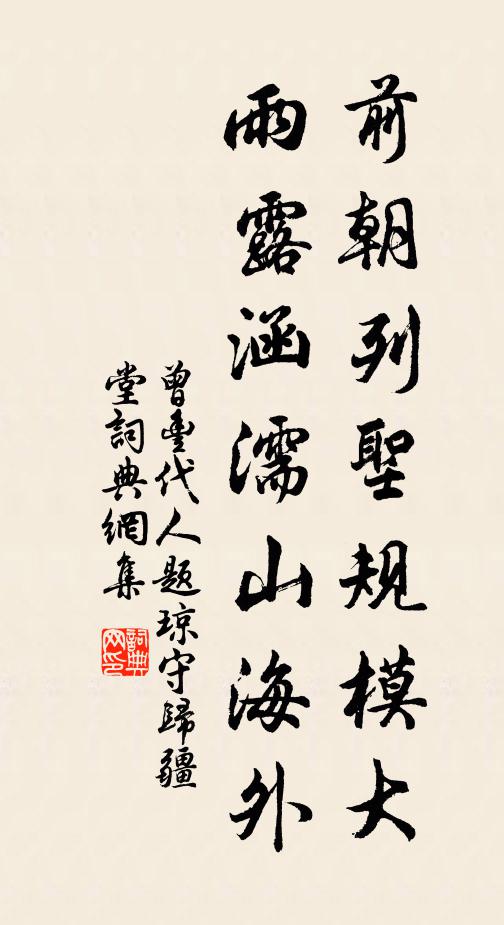 前朝列聖規模大
雨露涵濡山海外
曾豐代人題琼守歸疆
堂詞典網集
詞典
网印